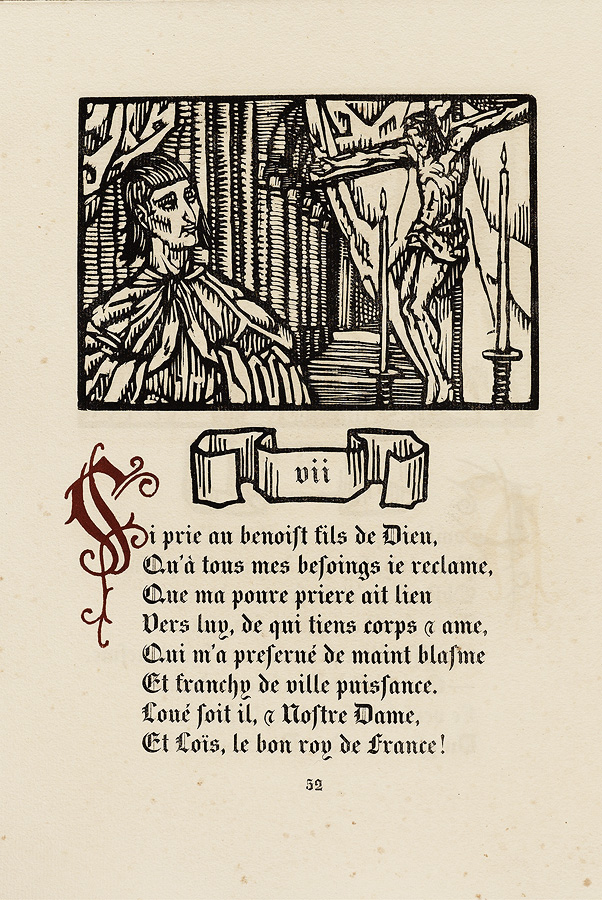 vii
Si prie au benoiſt fils de Dieu,
Qu'à tous mes beſoings ie reclame,
Que ma poure priere ait lieu
Vers luy, de qui tiens corps & ame,
Qui m'a preſerué de maint blaſme
Et franchy de ville puiſſance.
Loué ſoit il, & Noſtre Dame,
Et Loïs, le bon roy de France!
52